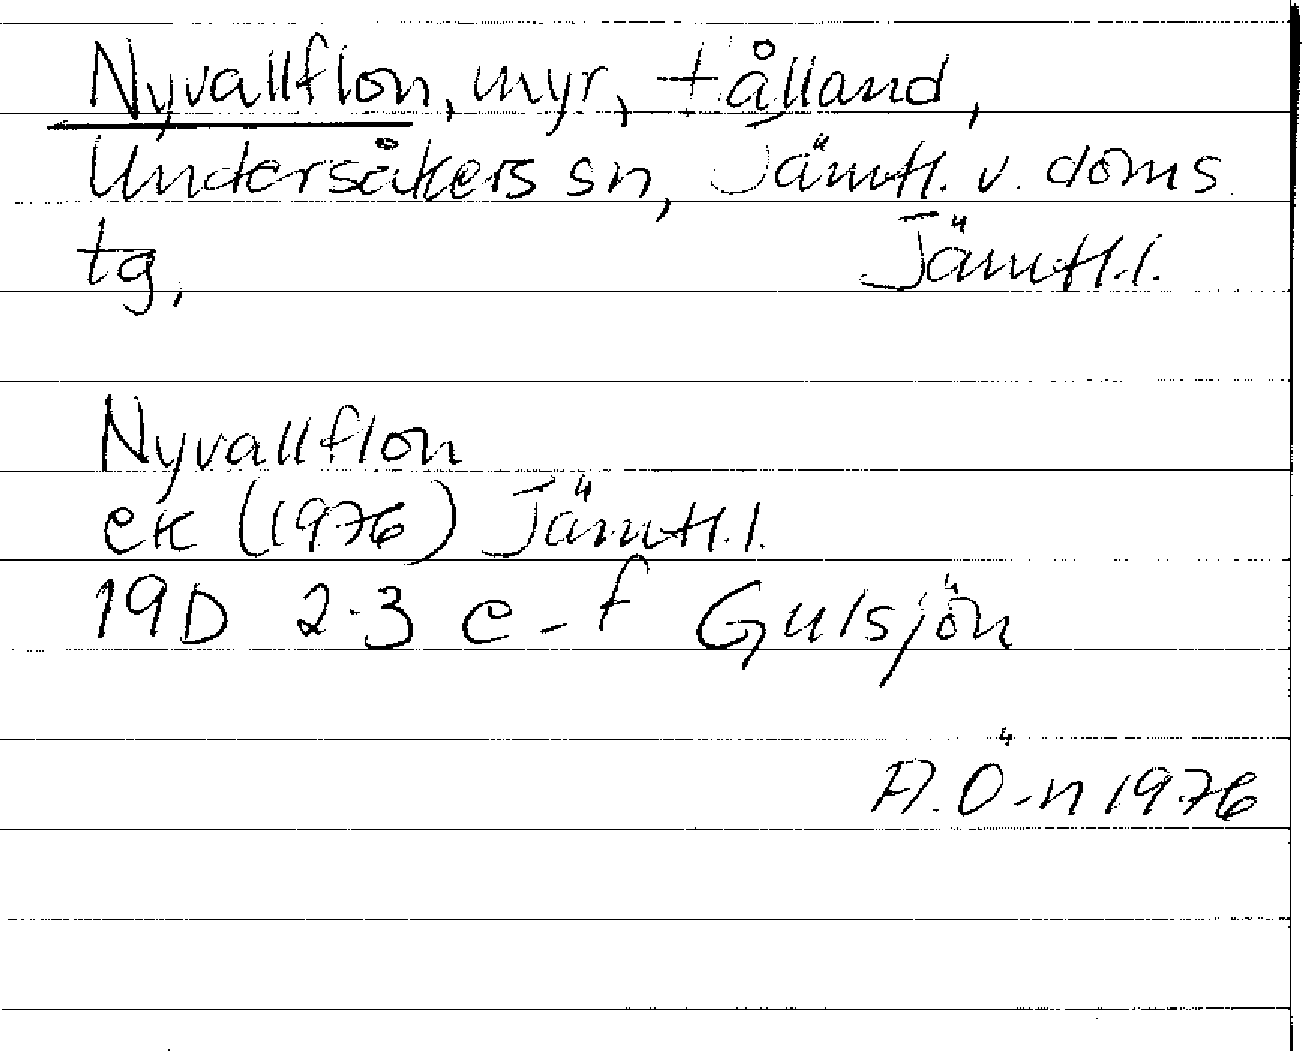 Nyvallflon, myr, t ålland,
Undersåkers sn, Jämtl. v. doms.
tg, Jämtl.l.
Nyvallflon
ek (1976) Jämtl.l.
19D 2-3 e-f Gulsjön
A.Ö-n 1976